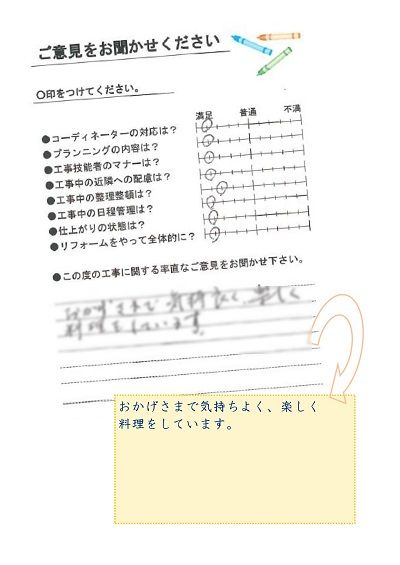 ご意見をお聞かせください
〇印をつけてください。
満足 普通 不満
●コーディネーターの対応は？
●プランニングの内容は？
●工事技能者のマナーは？
●工事中の近隣への配慮は？
●工事中の整理整頓は？
●工事中の日程管理は？
●仕上がりの状態は？
●リフォームをやって全体的に？
●この度の工事に関する率直なご意見をお聞かせ下さい。
おかげさまで気持良く、楽しく
料理をしています。
おかげさまで気持ちよく、楽しく
料理をしています。